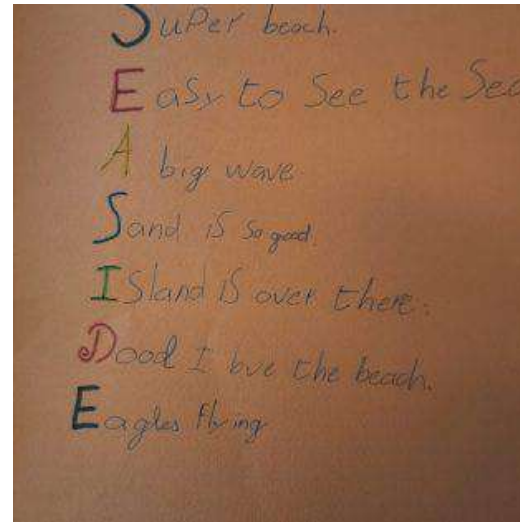 Super beach.
Easy to See the Sea
A big wave
Sand is so good.
Island is over there.
Dood I love the beach.
Eagles flying